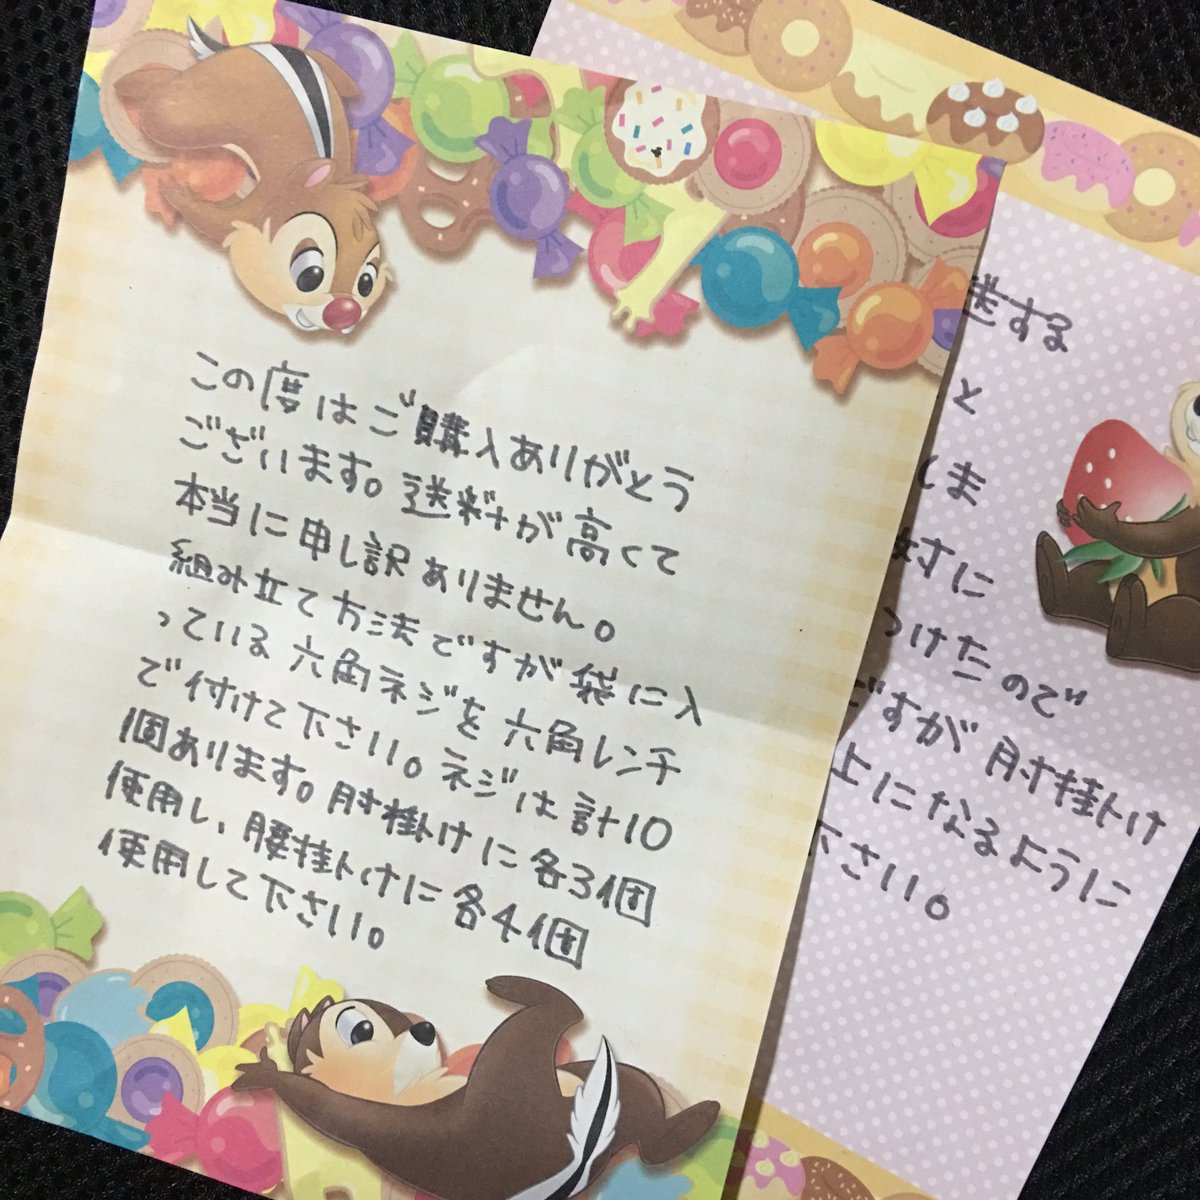 この度はご購入ありがとう
ございます。送料が高くて
本当に申し訳ありません。
組み立て方法ですが袋に入
っている六角ネジを六角レンチ
で付けて下さい。ネジは計10
個あります。肘掛けに各3個
使用し、腰掛けに各4個
使用して下さい。
送する
と
しま
対に
つけたので
ですが肘掛け
上になるように
下さい。